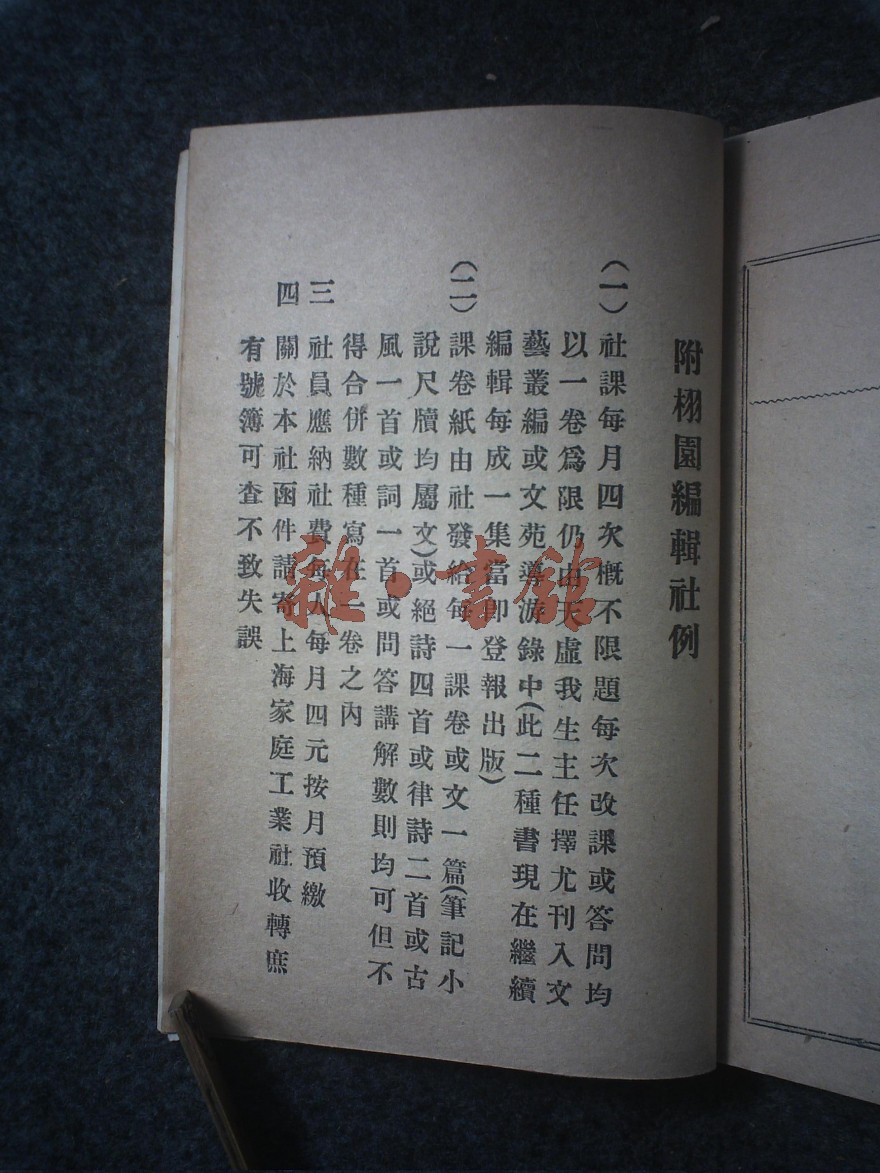 附栩園編輯社例
(一)社課每月四次概不限題每次改課或答問均
以一卷爲限仍由天虛我生主任擇尤刊入文
藝叢編或文苑導游錄中(此二種書現在繼續
編輯每成一集當即登報出版)
(二)課卷紙由社發給每一課卷或文一篇(筆記小
說尺牘均屬文)或絕詩四首或律詩二首或古
風一首或詞一首或問答講解數則均可但不
得合併數種寫在一卷之內
三 社員應納社費每人每月四元按月預繳
四 關於本社函件請寄上海家庭工業社收轉庶
有號簿可查不致失誤
雜·書館